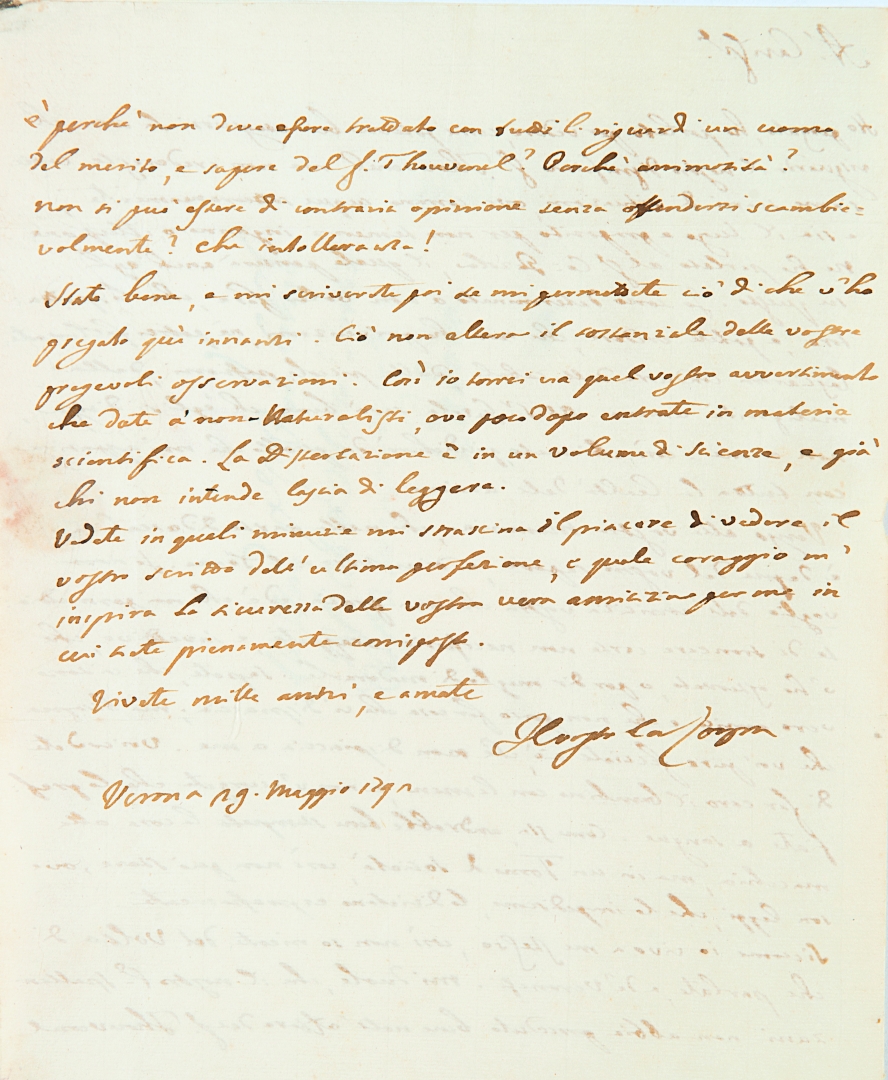 è perchè non deve essere trattato con tutti li riguardi un uomo
del merito, e sapere del S. Thouvenel? Perchè animosità?
non si può essere di contraria opinione senza offendersi scambie=
volmente? che intolleranza!
State bene, e mi scriverete poi se mi permettete ciò di che v'ho
pregato quì innanzi. Ciò non altera il sostanziale delle vostre
pregevoli osservazioni. Così io torrei via quel vostro avvertimento
che date a' non-Naturalisti, ove poco dopo entrate in materia
scientifica. La Dissertazione è in un volume di scienze, e già
chi non intende lascia di leggere.
Vedete in quali minuzie mi strascina il piacere di vedere il
vostro scritto dell'ultima perfezione, e quale coraggio m'
inspira la sicurezza della vostra vera amicizia per me in
cui siete pienamente corrisposto.
Vivete mille anni, e amate
Il vostro Lorgna
Verona 29. Maggio 1791